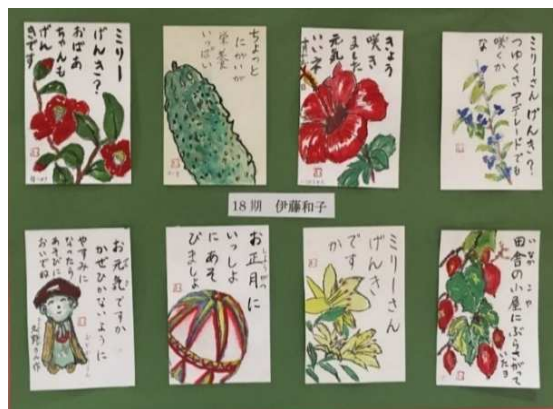 ミリー
げんき?
おばあ
ちゃんも
げん
きです
ちょっと
にがいが
栄養
いっぱい
きょう
咲き
ました
元気
いいネ
ミリーさん げんき?
つゆくさ アデレードでも
咲くか
な
18期 伊藤和子
お元気ですか
かぜひかないように
やすみに
なったら
あそびに
おいでね
お正月に
いっしょ
にあそ
びましょ
ミリーさん
げんき
です
か
田舎の小屋に
いなか こや
ぶらさがって
いたよ